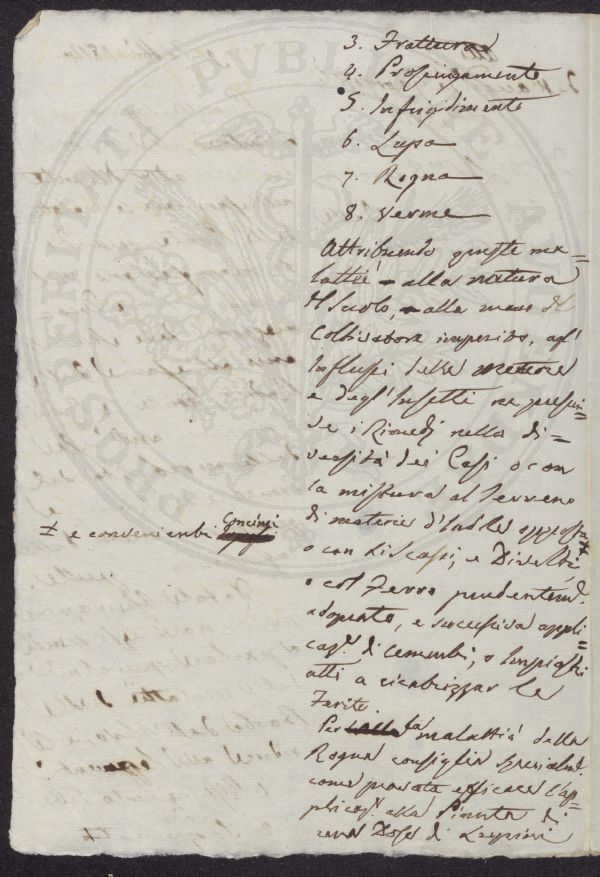 3. Frattura
4. Prosciugamento
5. Infrigidimento
6. Lupa
7. Rogna
8. Verme
Attribuendo queste ma=
lattie alla natura
del Suolo, alla mano del
Coltivatore imperito, agl'
Influssi delle meteore
e degl'Insetti ne prescri=
ve i Rimedj nella di=
versità dei Casi o con
la mistura al terreno
di materie d'Indole opposta
+ e convenienti Concimi
o con Scassi, e Divelti
o col Ferro prudentemte.
adoprato, e successiva appli
cazne. di cementi, o Impiastri
atti a cicatrizzar le
Ferite
Per la malattia della
Rogna consiglia specialmte.
come provata efficace l'ap
plicazne. alla Pianta di
una Dose di Lupini